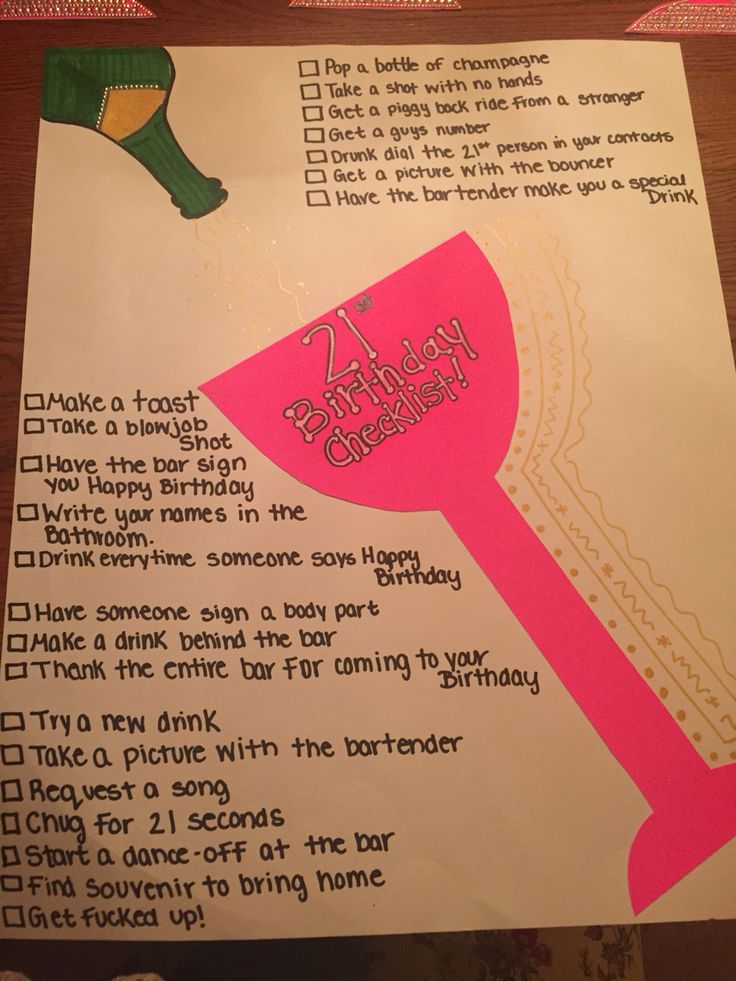 Pop a bottle of champagne
Take a shot with no hands
Get a piggy back ride from a stranger
Get a guys number
Drunk dial the 21st person in your contacts
Get a picture with the bouncer
Have the bartender make you a special
Drink
21st
Birthday
Checklist!
Make a toast
Take a blowjob
Shot
Have the bar sign
you Happy Birthday
Write your names in the
Bathroom.
Drink everytime someone says Happy
Birthday
Have someone sign a body part
Make a drink behind the bar
Thank the entire bar for coming to your
Birthday
Try a new drink
Take a picture with the bartender
Request a song
Chug for 21 seconds
Start a dance-off at the bar
Find souvenir to bring home
Get fucked up!